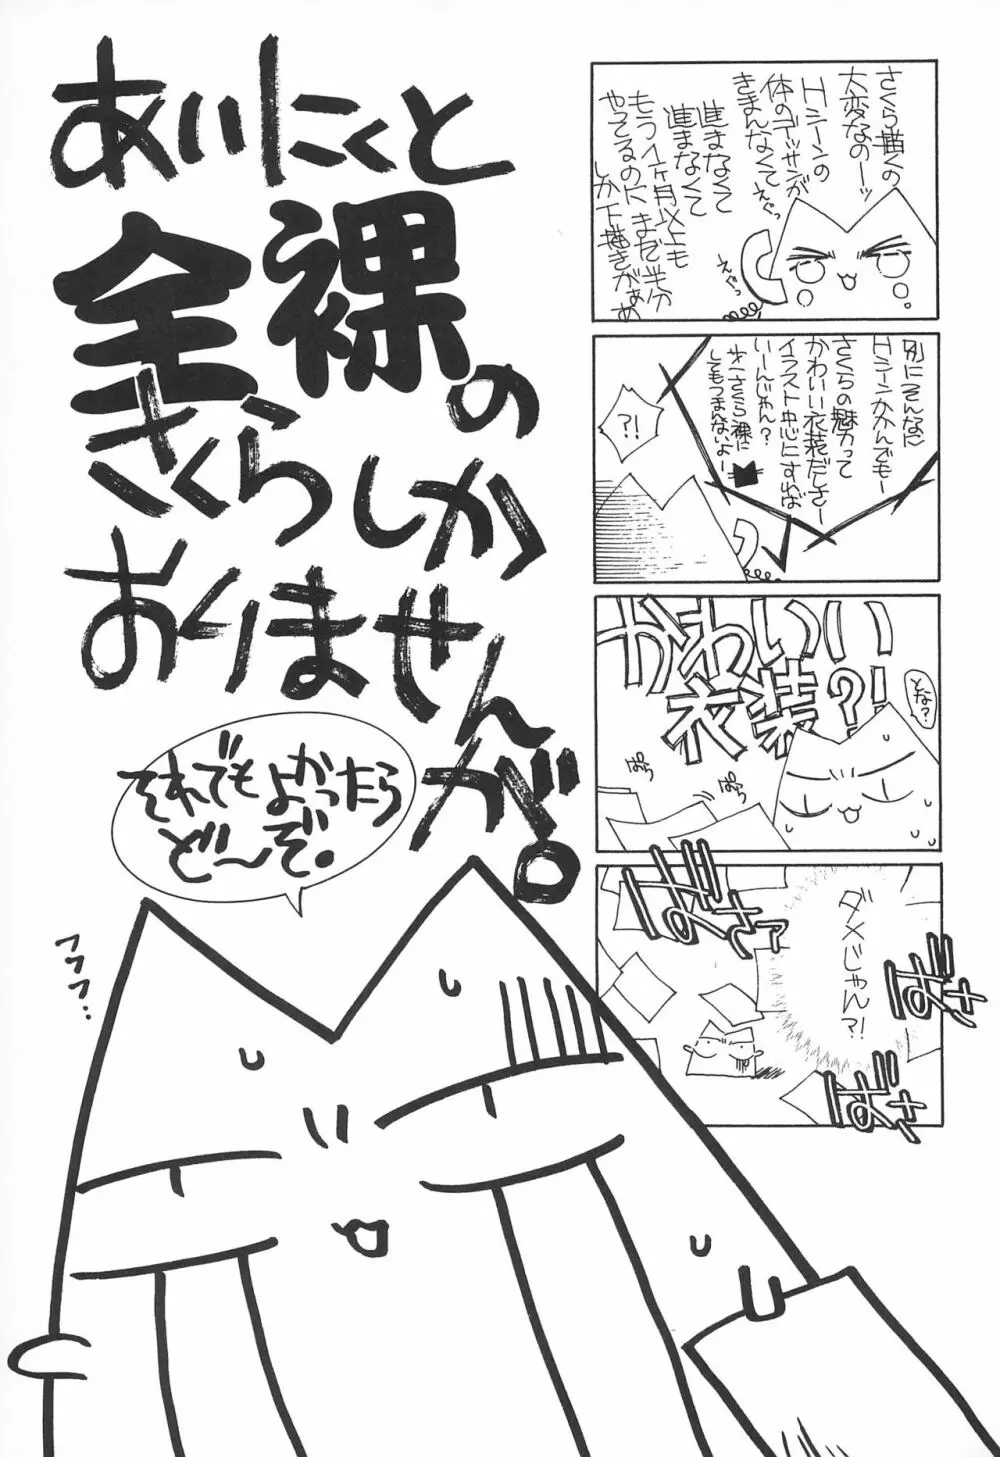 さくら描くの
大変なのーッ
Hシーンの
体のデッサンが
きまんなくて
えぐっ
進まなくて
進まなくて
もう1ヶ月以上も
やってるのにまだ半分
しか下描きがぁぁ
えぐっ
別にそんなに
Hシーンかかんでもー
さくらの魅力って
かわいい衣装だしさー
イラスト中心にすれば
いーんじゃん?
さくら裸に
してもつまんないよー
?!
かわいい
衣装?!
とな?
ぱら
ぱら
ばさっ
ばさ
ダメじゃん?!
ばさ
ばさ
ばさ
あいにくと
全裸の
さくらしか
おりませんが。
それでもよかったら
ど〜ぞ。
フフフ‥